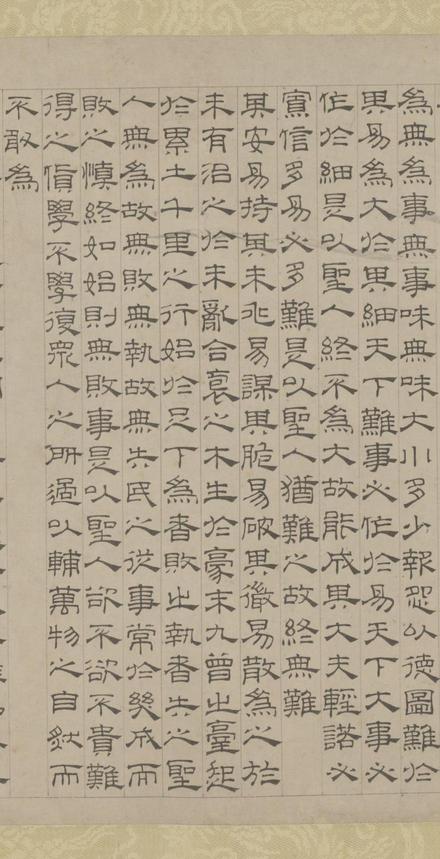 為無為事無事味無味大小多少報怨以德圖難於
其易為大於其細天下難事必作於易天下大事必
作於細是以聖人終不為大故能成其大夫輕諾必
寡信多易必多難是以聖人猶難之故終無難
其安易持其未兆易謀其脆易破其微易散為之於
未有治之於未亂合裒之木生於豪末九曾之臺起
於累土千里之行始於足下為者敗之執者失之聖
人無為故無敗無執故無失民之從事常於幾成而
敗之慎終如始則無敗事是以聖人欲不欲不貴難
得之貨學不學復衆人之所過以輔萬物之自然而
不敢為